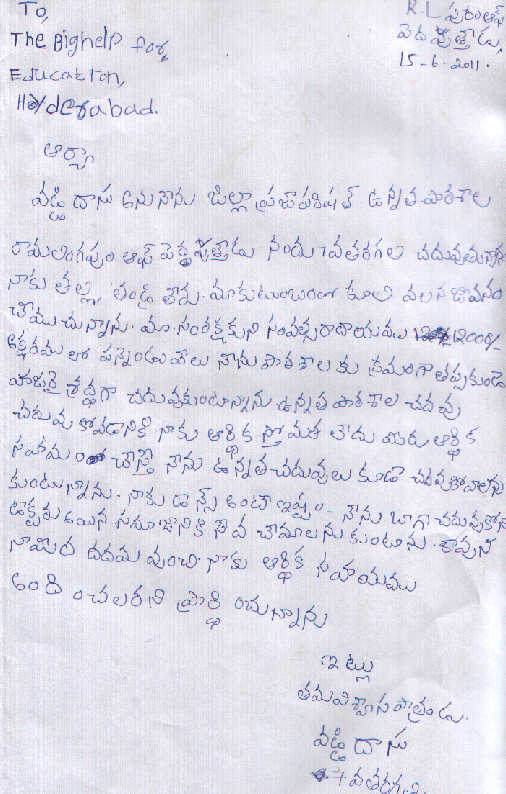 To,
The Bighelp for,
Education,
Hyderabad.
R.L పురంఆఫ్
పెద పుత్తేడు,
15-6-2011.
ఆర్యా
వడ్డి దాసు అనునాను జిల్లా ప్రజాపరిషత్ ఉన్నత పాఠశాల
రామలింగపురం ఆఫ్ పెద్ద నందు 7వతరగతి చదువుతున్నాను
నాకు తల్లి, తండ్రి లేరు. మాకుటుంబంలో కూలి వలన జీవనం
చేముచున్నాను. మా సంరక్షకుని సంవత్సరాదాయము 12000/-
అక్షరము లో పన్నెండువేలు నేను పాఠశాల కు క్రమంగా తప్పకుండా
హాజరై శ్రద్ధగా చదువుకుంటున్నాను ఉన్నత పాఠశాల చదువు
చదువు కోవడానికి నాకు ఆర్థిక స్తోమత లేదు మీరు ఆర్థిక
సహాయం చేస్తే నేను ఉన్నతచదువులు కూడా చదువుకోవాలను
కుంటున్నాను. నాకు డాన్స్ అంటే ఇష్టం. నేను బాగా చదువుకోని
డాక్టరు అయిన సమాజానికి సేవ చేయాలను కుంటును. కావున
నామీద దయ వుంచి నాకు ఆర్థిక సహాయము
అంది ంచలరని ప్రార్థి ంచుచున్నాను
ఇట్లు
తమవిశ్వాస పాత్రుడు.
వడ్డి దాసు
7వతరగతి.